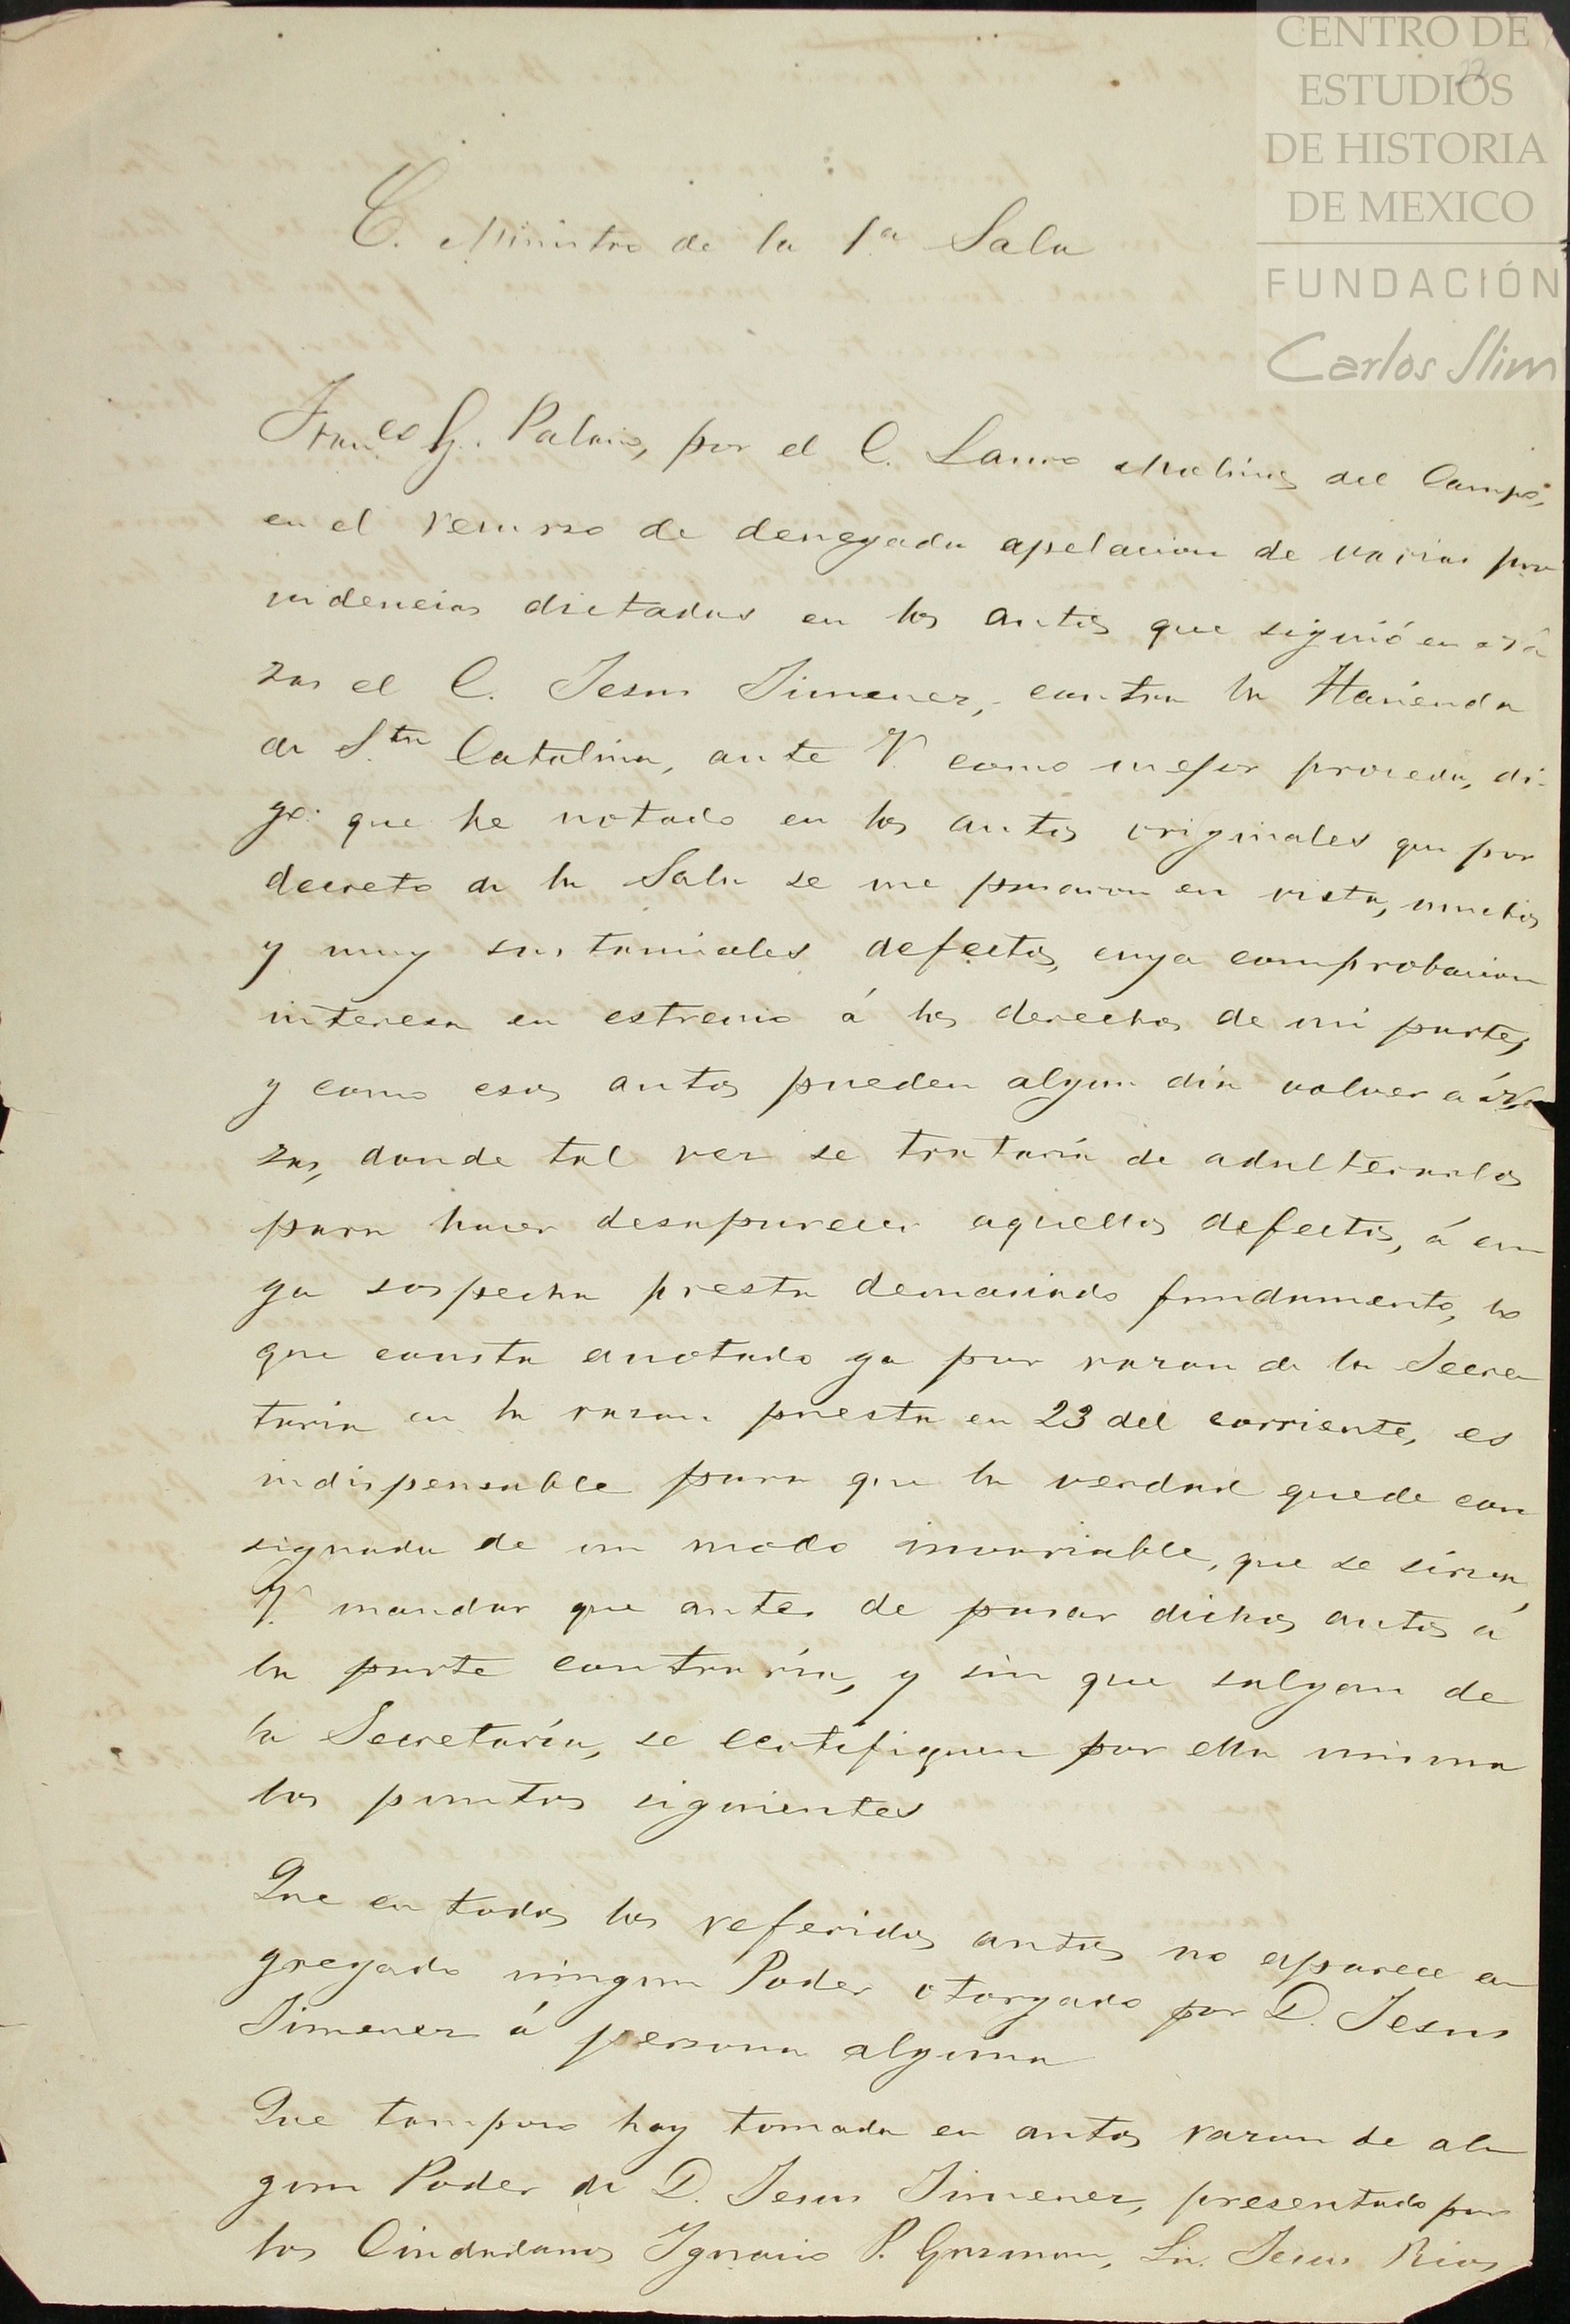 CENTRO DE
ESTUDIOS
DE HISTORIA
DE MEXICO
FUNDACIÓN
Carlos Slim
C. Ministro de la 1ª Sala
Franco G. Palacio, por el C. Lauro Molina del Campo,
en el recurso de denegada apelacion de varias pro
videncias dictadas en los autos que siguió en
zas el C. Jesus Jimenez, contra la Hacienda
de Sta Catalina, ante V. como mejor proceda, di-
go: que he notado en los autos originales que por
decreto de la Sala se me pasaron en vista, muchos
y muy sustanciales defectos, cuya comprobacion
interesa en estremo á los derechos de mi parte;
y como esos autos pueden algun dia volver á
zas, donde tal vez se trataria de adulterarlos
para hacer desaparecer aquellos defectos, á cu
ya sospecha presta demasiado fundamento, lo
que consta anotado ya por razon de la Secre
taria en la razon puesta en 23 del corriente, es
indispensable para que la verdad quede con
signada de un modo invariable, que se sirva
V. mandar que antes de pasar dichos autos á
la parte contraria, y sin que salgan de
la Secretaría, se certifiquen por ella misma
los puntos siguientes
Que en todos los referidos autos no aparece a
gregado ningun Poder otorgado por D. Jesus
Jimenez á persona alguna
Que tampoco hay tomada en autos razon de al
gun Poder de D. Jesus Jimenez, presentado por
los Ciudadanos Ignacio P. Guzman, Lic. Jesus Rios